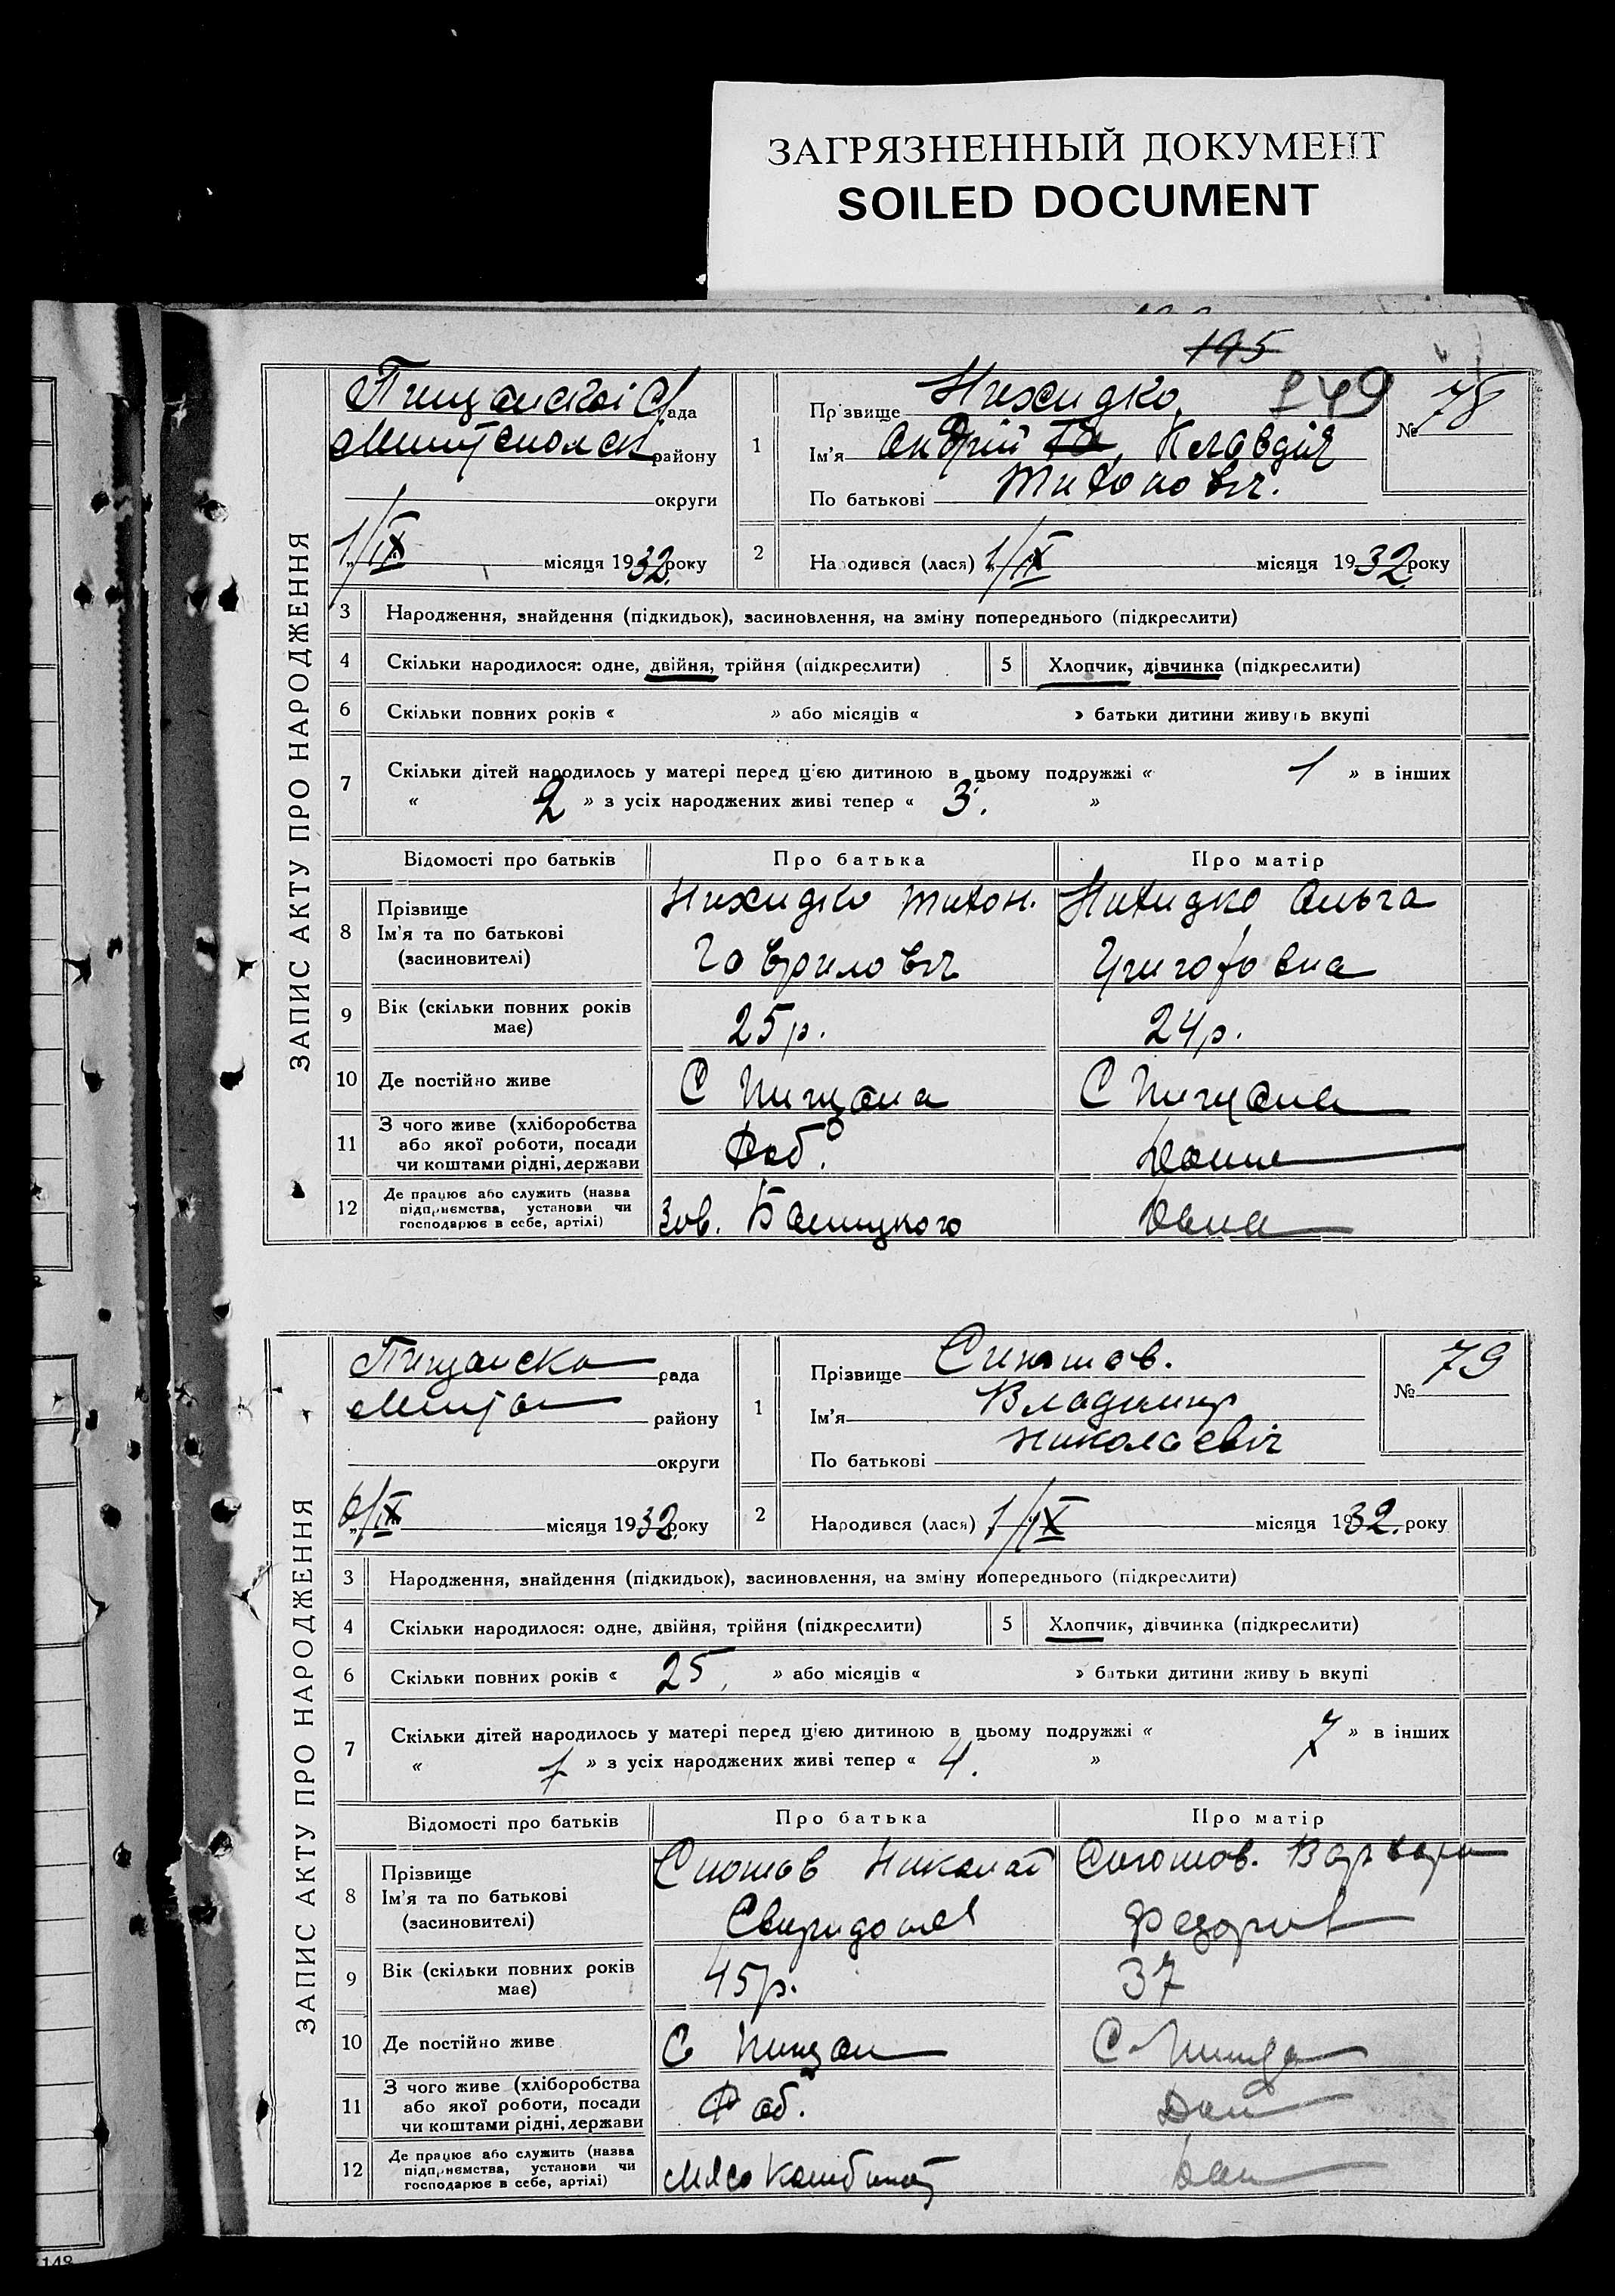 ЗАГРЯЗНЕННЫЙ ДОКУМЕНТ
SOILED DOCUMENT
195
ЗАПИС АКТУ ПРО НАРОДЖЕННЯ
рада
району
округи
1/IX місяця 1932 року
1
Прізвище Нихидко 249
Ім'я Андрій та, Клавдія
По батькові Тихонович.
№ 78
2
Народився (лася) 1/IX місяця 1932 року
3 Народження, знайдення (підкидьок), засиновлення, на зміну попереднього (підкреслити)
4 Скільки народилося: одне, двійня, трійня (підкреслити)
5 Хлопчик, дівчинка (підкреслити)
6 Скільки повних років « » або місяців « » батьки дитини живуть вкупі
7 Скільки дітей народилось у матері перед цією дитиною в цьому подружжі « 1 » в інших
« 2 » з усіх народжених живі тепер « 3. »
Відомості про батьків Про батька Про матір
8 Прізвище
Ім'я та по батькові
(засиновителі)
Нихидко Тихон.
Гаврилович
Нихидко Ольга
Григоровна
9 Вік (скільки повних років має) 25 р. 24 р.
10 Де постійно живе С Пищана С Пищана
11 З чого живе (хліборобства
або якої роботи, посади
чи коштами рідні, держави
Роб.
12 Де працює або служить (назва
підприємства, установи чи
господарює в себе, артілі)
Зав. Балицкого
ЗАПИС АКТУ ПРО НАРОДЖЕННЯ
Пищанска рада
району
округи
6/IX місяця 1932 року
1
Прізвище
Ім'я Владимир
По батькові Николаевіч
№ 79
2
Народився (лася) 1/IX місяця 1932. року
3 Народження, знайдення (підкидьок), засиновлення, на зміну попереднього (підкреслити)
4 Скільки народилося: одне, двійня, трійня (підкреслити)
5 Хлопчик, дівчинка (підкреслити)
6 Скільки повних років « 25 » або місяців « » батьки дитини живуть вкупі
7 Скільки дітей народилось у матері перед цією дитиною в цьому подружжі « 7 » в інших
« » з усіх народжених живі тепер « 4. »
Відомості про батьків Про батька Про матір
8 Прізвище
Ім'я та по батькові
(засиновителі)
Николай
Варвара
9 Вік (скільки повних років має) 45 р. 37
10 Де постійно живе С Пищан С.
11 З чого живе (хліборобства
або якої роботи, посади
чи коштами рідні, держави
Роб.
12 Де працює або служить (назва
підприємства, установи чи
господарює в себе, артілі)
Мясокомбинат
148